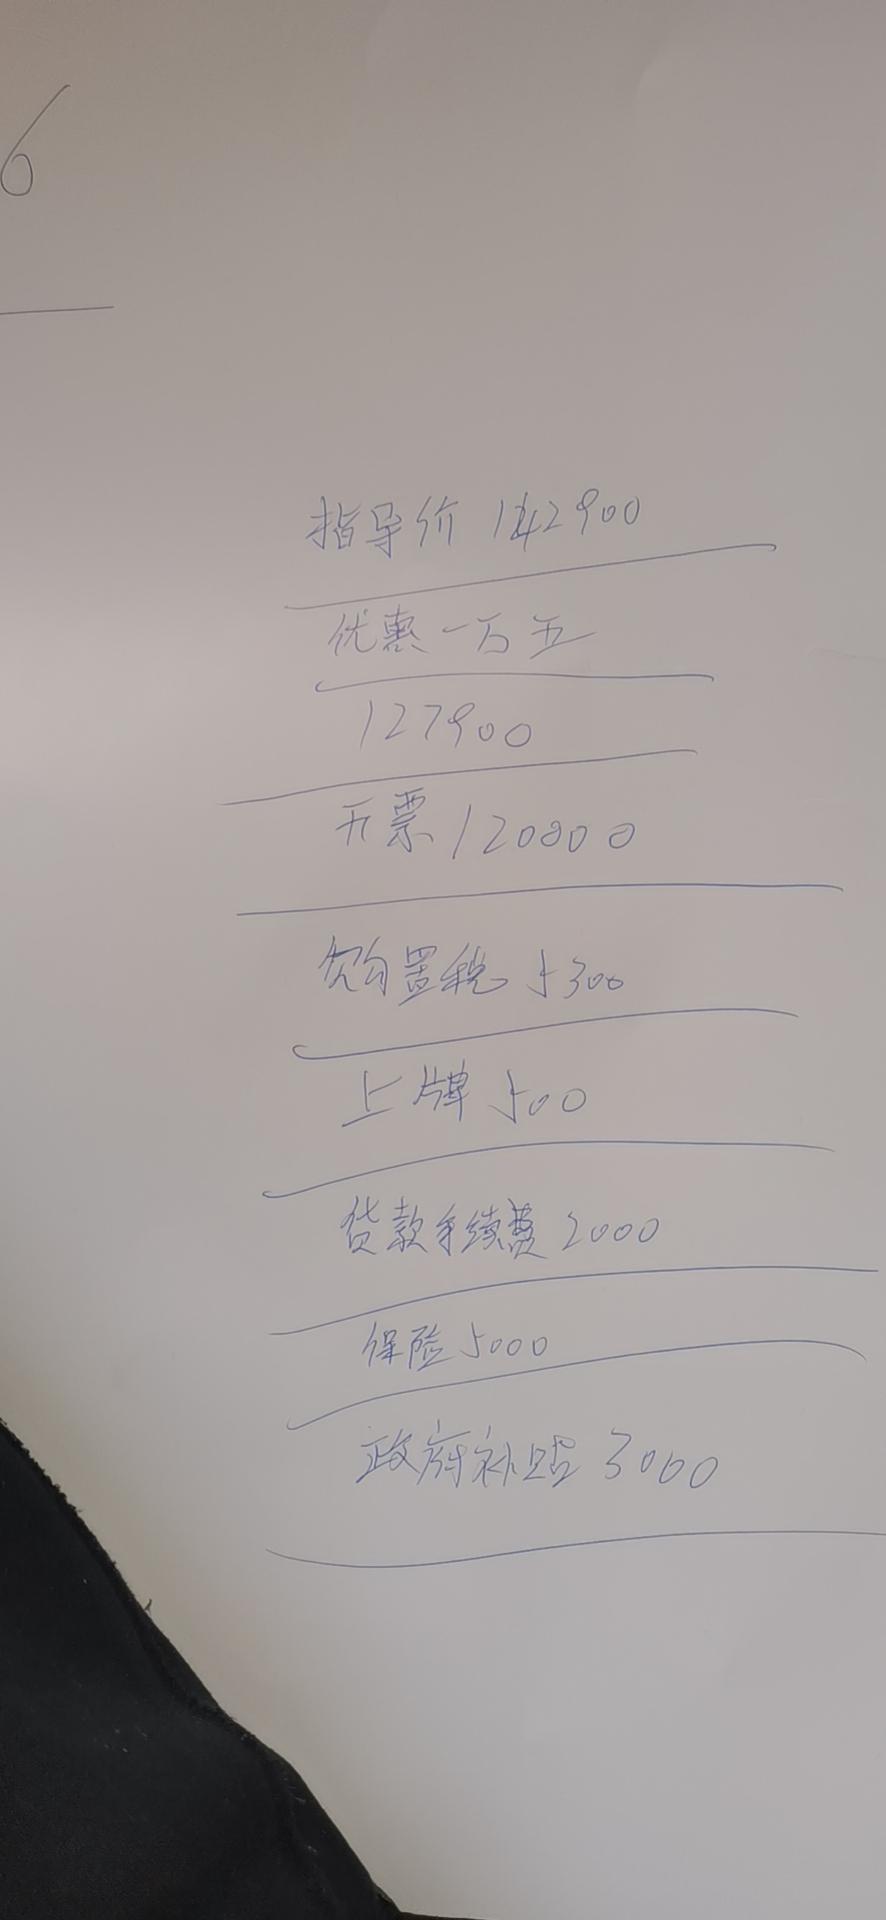 6
指导价 142900
优惠一万五
127900
开票 120000
购置税 5300
上牌 500
贷款手续费 2000
保险 5000
政府补贴 3000